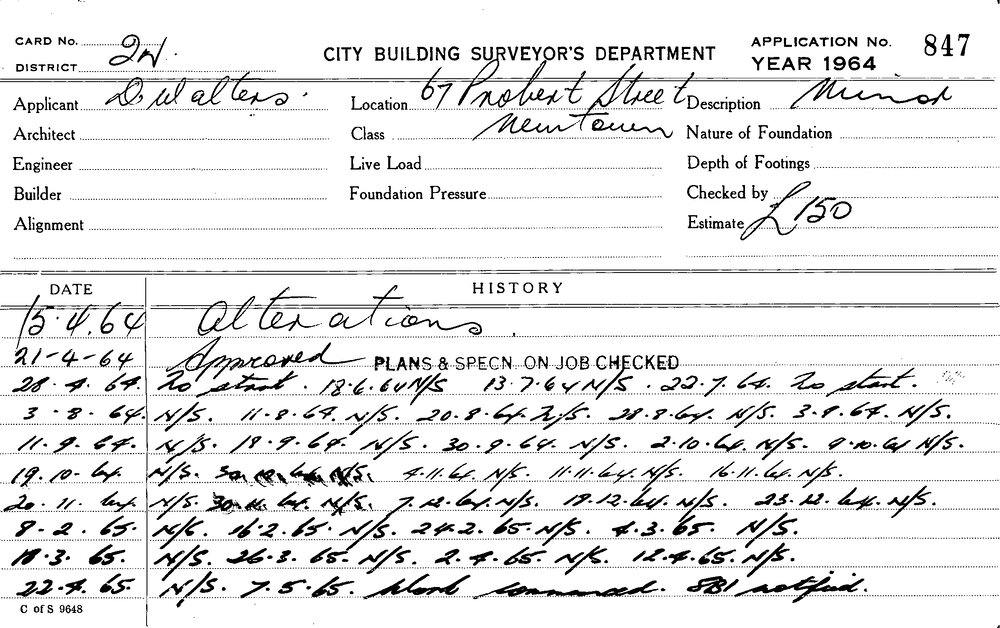 CARD No. 2W.
DISTRICT
CITY BUILDING SURVEYOR'S DEPARTMENT
APPLICATION No. 847
YEAR 1964
Applicant D Walters. Location 67 Probert Street Description Minor
Architect Class Newtown Nature of Foundation
Engineer Live Load Depth of Footings
Builder Foundation Pressure Checked by
Alignment Estimate £150
DATE HISTORY
15.4.64 Alterations.
21-4-64 Approved PLANS & SPECN. ON JOB CHECKED
28.4.64. No start. 18.6.64 N/S 13.7.64 N/S. 22.7.64. No start.
3.8.64. N/S. 11.8.64. N/S. 20.8.64. N/S. 28.8.64. N/S. 3.9.64. N/S.
11.9.64. N/S. 18.9.64. N/S. 30.9.64. N/S. 2.10.64. N/S. 9.10.64 N/S.
19.10.64. N/S. 4.11.64 N/S. 11.11.64. N/S. 16.11.64. N/S.
20.11.64. N/S. 30.11.64. N/S. 7.12.64. N/S. 17.12.64. N/S. 23.12.64. N/S.
8.2.65. N/S. 16.2.65. N/S. 24.2.65. N/S. 4.3.65. N/S.
18.3.65. N/S. 26.3.65. N/S. 2.4.65. N/S. 12.4.65. N/S.
22.4.65. N/S. 7.5.65. commenced. SBI notified.
C of S 9648